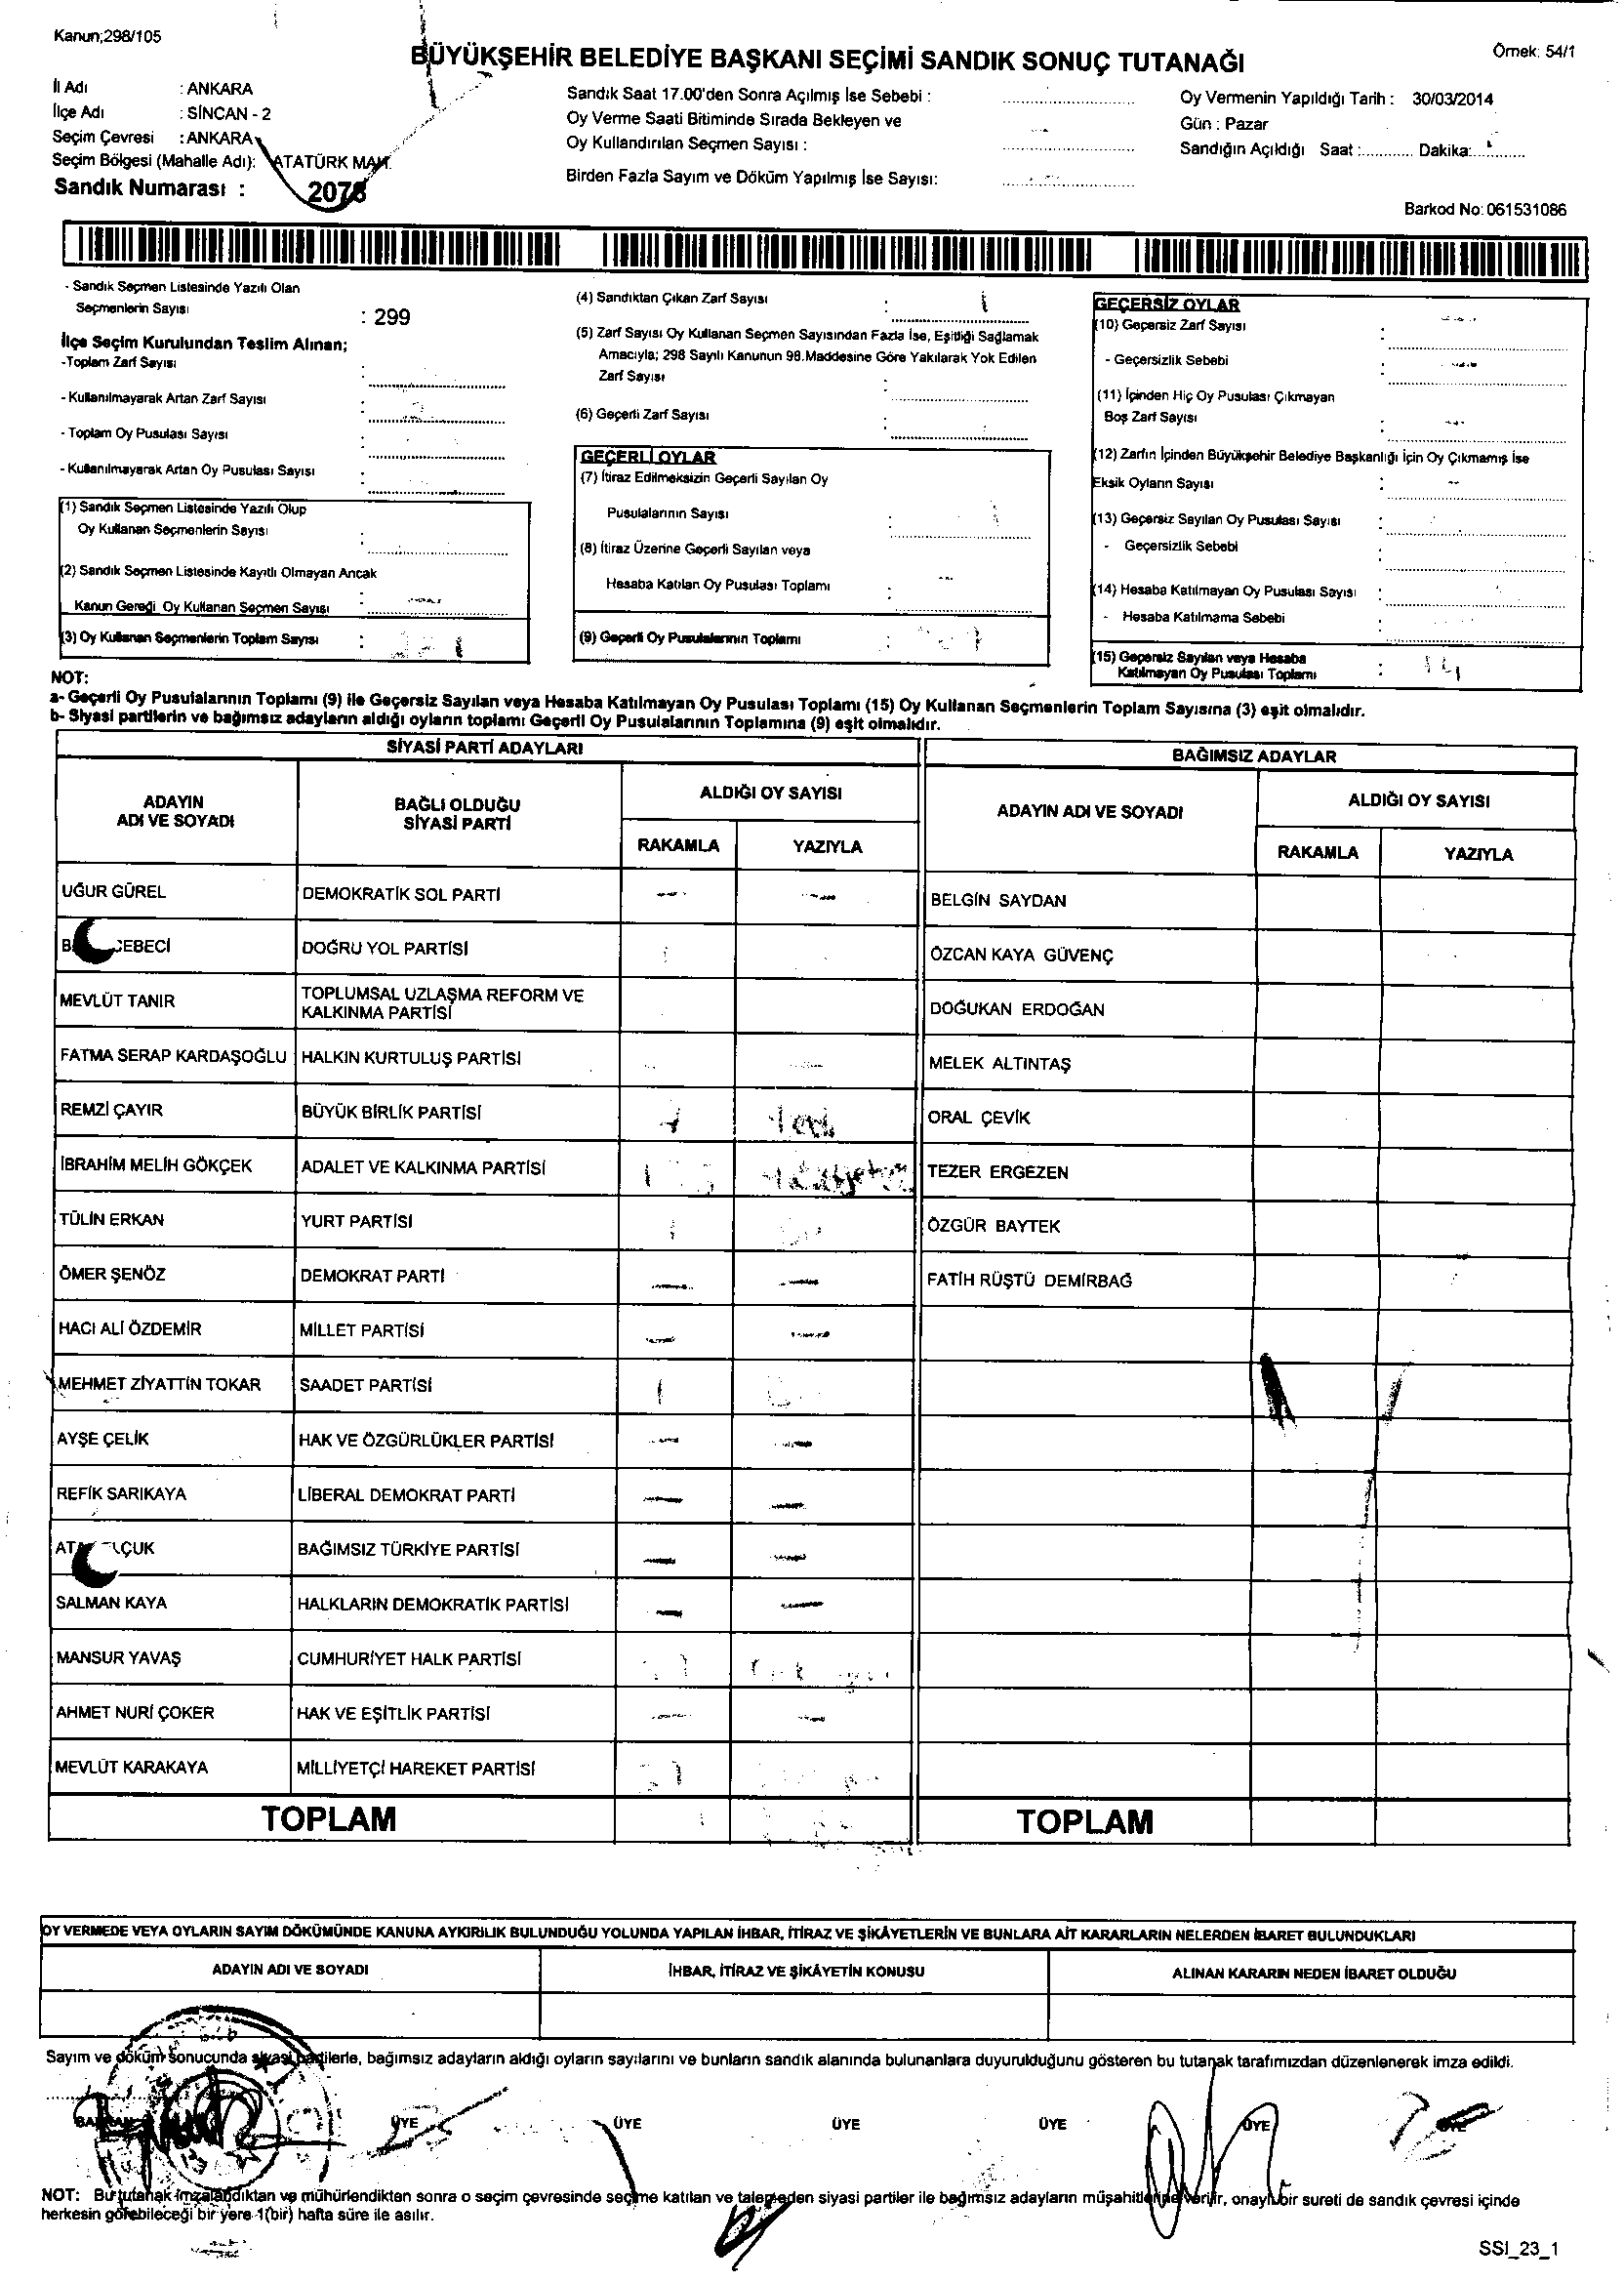 Kanun;298/105
BÜYÜKŞEHİR BELEDİYE BAŞKANI SEÇİMİ SANDIK SONUÇ TUTANAĞI
Örnek: 54/1
İl Adı : ANKARA
İlçe Adı : SİNCAN - 2
Seçim Çevresi : ANKARA
Seçim Bölgesi (Mahalle Adı): ATATÜRK MAH.
Sandık Numarası : 2078
Sandık Saat 17.00'den Sonra Açılmış İse Sebebi :
Oy Verme Saati Bitiminde Sırada Bekleyen ve
Oy Kullandırılan Seçmen Sayısı :
Birden Fazla Sayım ve Döküm Yapılmış İse Sayısı:
Oy Vermenin Yapıldığı Tarih : 30/03/2014
Gün : Pazar
Sandığın Açıldığı Saat :............ Dakika:............
Barkod No: 061531086
- Sandık Seçmen Listesinde Yazılı Olan
Seçmenlerin Sayısı : 299
İlçe Seçim Kurulundan Teslim Alınan;
-Toplam Zarf Sayısı :
- Kullanılmayarak Artan Zarf Sayısı :
- Toplam Oy Pusulası Sayısı :
- Kullanılmayarak Artan Oy Pusulası Sayısı :
(1) Sandık Seçmen Listesinde Yazılı Olup
Oy Kullanan Seçmenlerin Sayısı :
(2) Sandık Seçmen Listesinde Kayıtlı Olmayan Ancak
Kanun Gereği Oy Kullanan Seçmen Sayısı :
(3) Oy Kullanan Seçmenlerin Toplam Sayısı :
(4) Sandıktan Çıkan Zarf Sayısı :
(5) Zarf Sayısı Oy Kullanan Seçmen Sayısından Fazla İse, Eşitliği Sağlamak
Amacıyla; 298 Sayılı Kanunun 98.Maddesine Göre Yakılarak Yok Edilen
Zarf Sayısı :
(6) Geçerli Zarf Sayısı :
GEÇERLİ OYLAR
(7) İtiraz Edilmeksizin Geçerli Sayılan Oy
Pusulalarının Sayısı :
(8) İtiraz Üzerine Geçerli Sayılan veya
Hesaba Katılan Oy Pusulası Toplamı :
(9) Geçerli Oy Pusulalarının Toplamı :
GEÇERSİZ OYLAR
(10) Geçersiz Zarf Sayısı :
- Geçersizlik Sebebi :
(11) İçinden Hiç Oy Pusulası Çıkmayan
Boş Zarf Sayısı :
(12) Zarfın İçinden Büyükşehir Belediye Başkanlığı İçin Oy Çıkmamış İse
Eksik Oyların Sayısı :
(13) Geçersiz Sayılan Oy Pusulası Sayısı :
- Geçersizlik Sebebi :
(14) Hesaba Katılmayan Oy Pusulası Sayısı :
- Hesaba Katılmama Sebebi :
(15) Geçersiz Sayılan veya Hesaba
Katılmayan Oy Pusulası Toplamı : 14
NOT:
a- Geçerli Oy Pusulalarının Toplamı (9) ile Geçersiz Sayılan veya Hesaba Katılmayan Oy Pusulası Toplamı (15) Oy Kullanan Seçmenlerin Toplam Sayısına (3) eşit olmalıdır.
b- Siyasi partilerin ve bağımsız adayların aldığı oyların toplamı Geçerli Oy Pusulalarının Toplamına (9) eşit olmalıdır.
SİYASİ PARTİ ADAYLARI
ADAYIN ADI VE SOYADI
BAĞLI OLDUĞU SİYASİ PARTİ
ALDIĞI OY SAYISI
RAKAMLA YAZIYLA
UĞUR GÜREL DEMOKRATİK SOL PARTİ — —
CEBECİ DOĞRU YOL PARTİSİ
MEVLÜT TANIR TOPLUMSAL UZLAŞMA REFORM VE KALKINMA PARTİSİ
FATMA SERAP KARDAŞOĞLU HALKIN KURTULUŞ PARTİSİ
REMZİ ÇAYIR BÜYÜK BİRLİK PARTİSİ 7 Yedi
İBRAHİM MELİH GÖKÇEK ADALET VE KALKINMA PARTİSİ
TÜLİN ERKAN YURT PARTİSİ
ÖMER ŞENÖZ DEMOKRAT PARTİ — —
HACI ALİ ÖZDEMİR MİLLET PARTİSİ — —
MEHMET ZİYATTİN TOKAR SAADET PARTİSİ
AYŞE ÇELİK HAK VE ÖZGÜRLÜKLER PARTİSİ — —
REFİK SARIKAYA LİBERAL DEMOKRAT PARTİ — —
BAĞIMSIZ TÜRKİYE PARTİSİ — —
SALMAN KAYA HALKLARIN DEMOKRATİK PARTİSİ — —
MANSUR YAVAŞ CUMHURİYET HALK PARTİSİ
AHMET NURİ ÇOKER HAK VE EŞİTLİK PARTİSİ — —
MEVLÜT KARAKAYA MİLLİYETÇİ HAREKET PARTİSİ
TOPLAM
BAĞIMSIZ ADAYLAR
ADAYIN ADI VE SOYADI
ALDIĞI OY SAYISI
RAKAMLA YAZIYLA
BELGİN SAYDAN
ÖZCAN KAYA GÜVENÇ
DOĞUKAN ERDOĞAN
MELEK ALTINTAŞ
ORAL ÇEVİK
TEZER ERGEZEN
ÖZGÜR BAYTEK
FATİH RÜŞTÜ DEMİRBAĞ
TOPLAM
OY VERMEDE VEYA OYLARIN SAYIM DÖKÜMÜNDE KANUNA AYKIRILIK BULUNDUĞU YOLUNDA YAPILAN İHBAR, İTİRAZ VE ŞİKÂYETLERİN VE BUNLARA AİT KARARLARIN NELERDEN İBARET BULUNDUKLARI
ADAYIN ADI VE SOYADI
İHBAR, İTİRAZ VE ŞİKÂYETİN KONUSU
ALINAN KARARIN NEDEN İBARET OLDUĞU
Sayım ve döküm sonucunda siyasi partilerle, bağımsız adayların aldığı oyların sayılarını ve bunların sandık alanında bulunanlara duyurulduğunu gösteren bu tutanak tarafımızdan düzenlenerek imza edildi.
BAŞKAN ÜYE ÜYE ÜYE ÜYE ÜYE ÜYE
NOT: Bu tutanak imzalandıktan ve mühürlendikten sonra o seçim çevresinde seçime katılan ve talep eden siyasi partiler ile bağımsız adayların müşahitlerine verilir, onaylı bir sureti de sandık çevresi içinde
herkesin görebileceği bir yere 1(bir) hafta süre ile asılır.
SSI_23_1